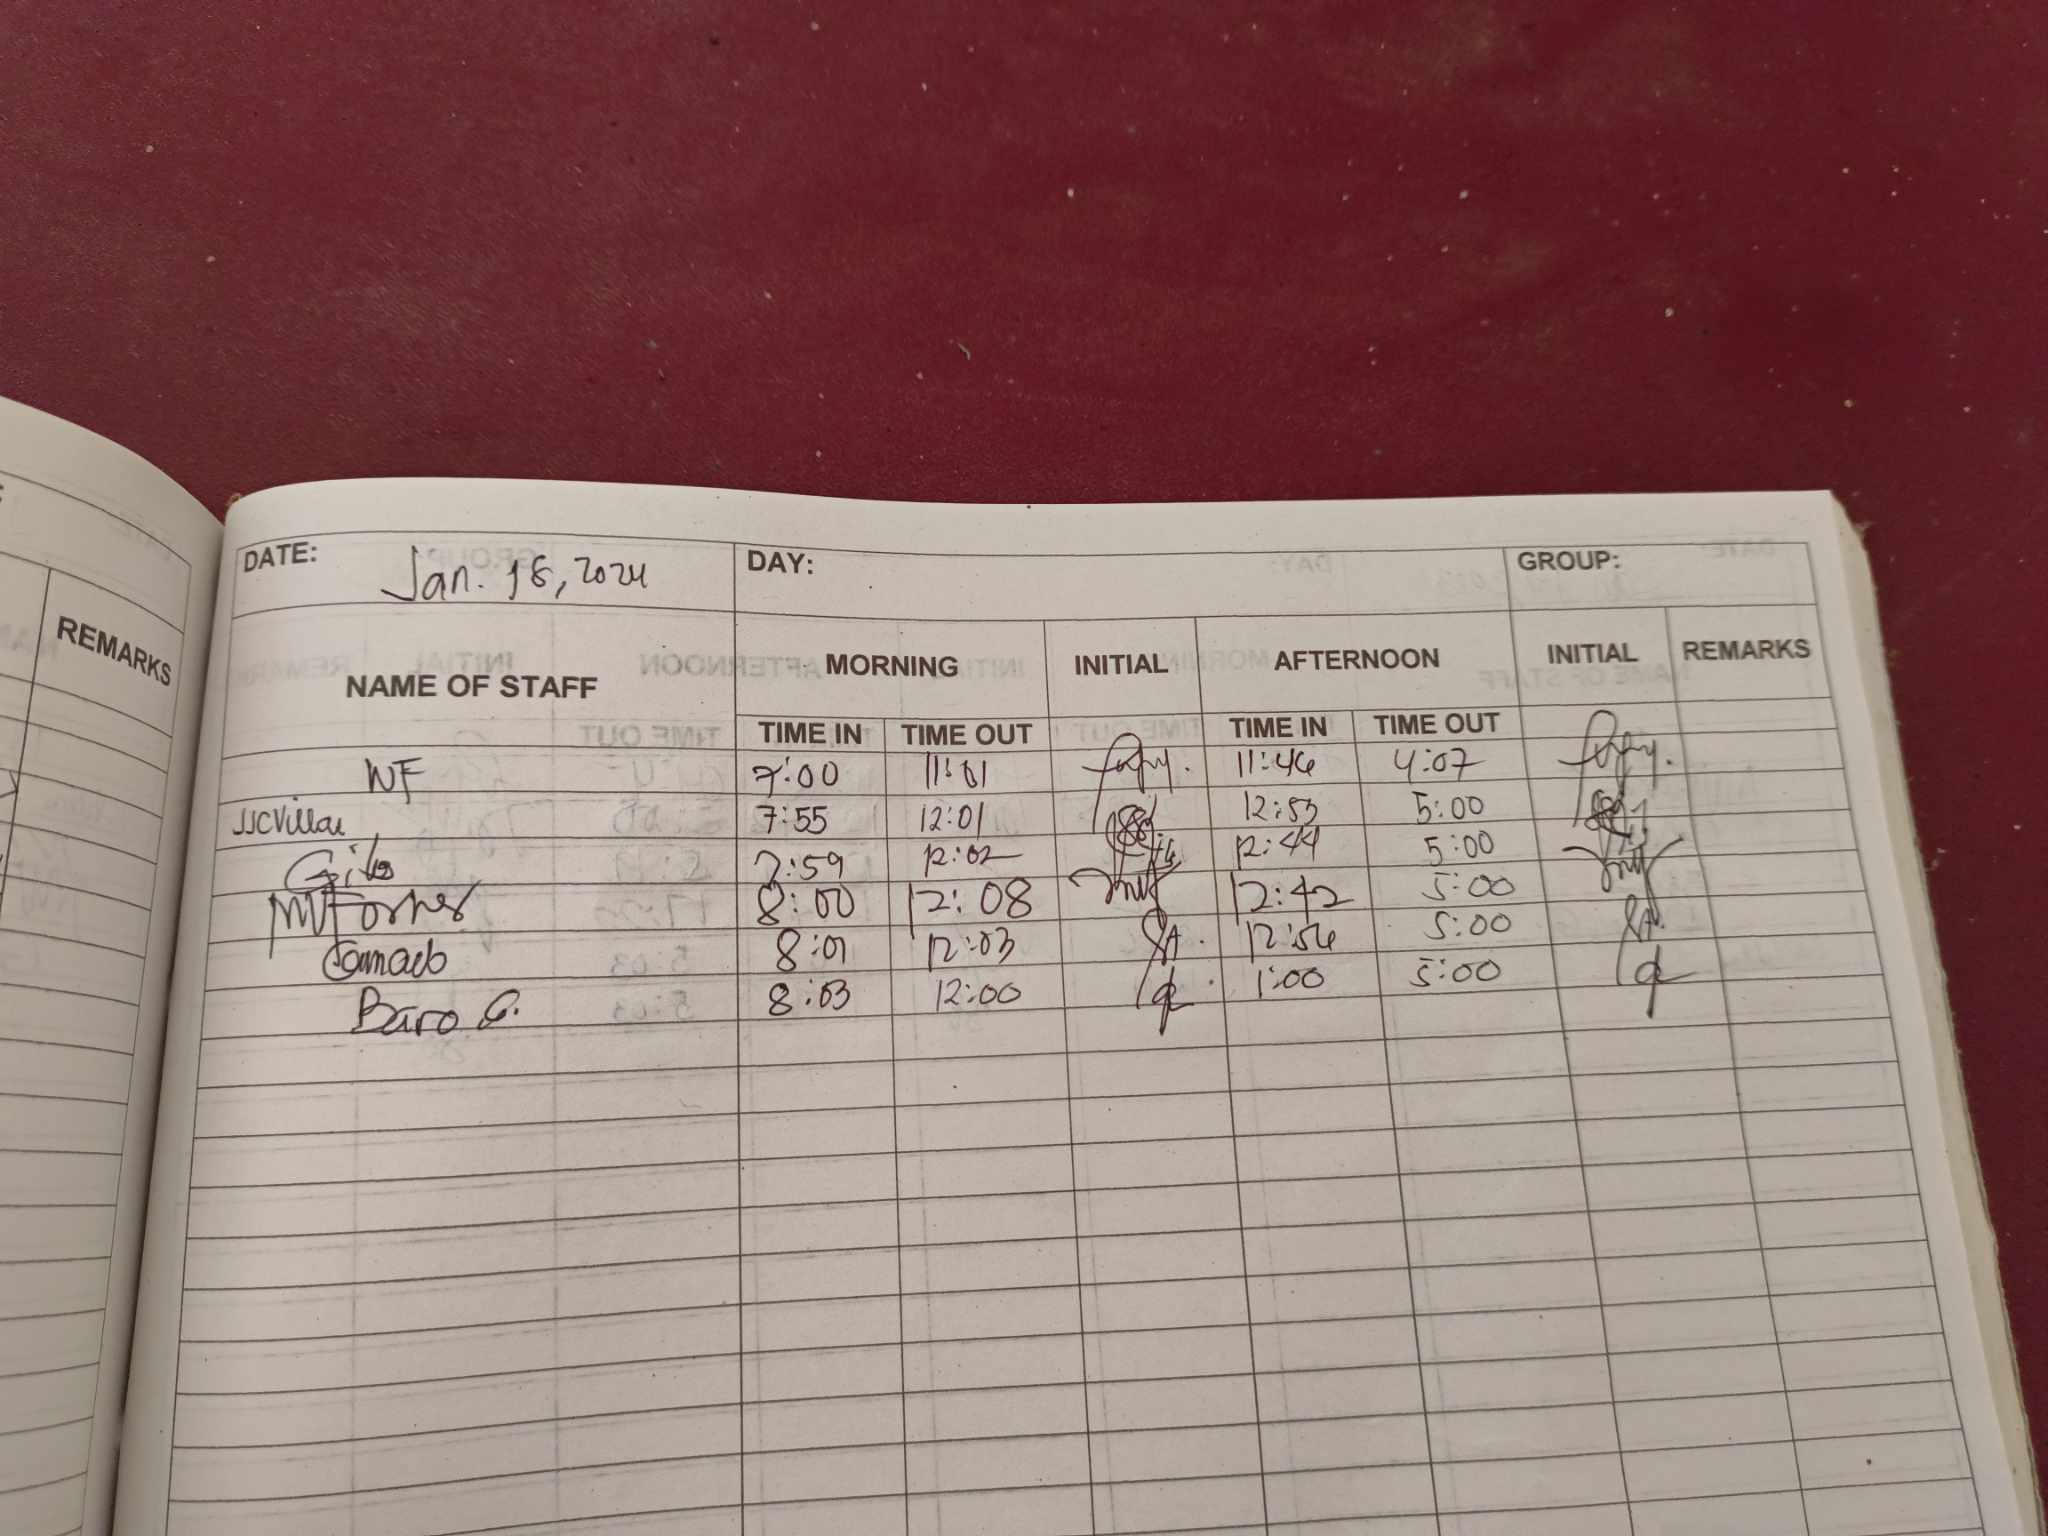 REMARKS
DATE: Jan. 18, 2024 DAY: GROUP:
NAME OF STAFF MORNING INITIAL AFTERNOON INITIAL REMARKS
TIME IN TIME OUT TIME IN TIME OUT
WF 7:00 11:01 11:46 4:07
JJCVillar 7:55 12:01 12:53 5:00
7:59 12:02 12:44 5:00
8:00 12:08 12:42 5:00
8:01 12:03 12:56 5:00
Baro G. 8:03 12:00 1:00 5:00